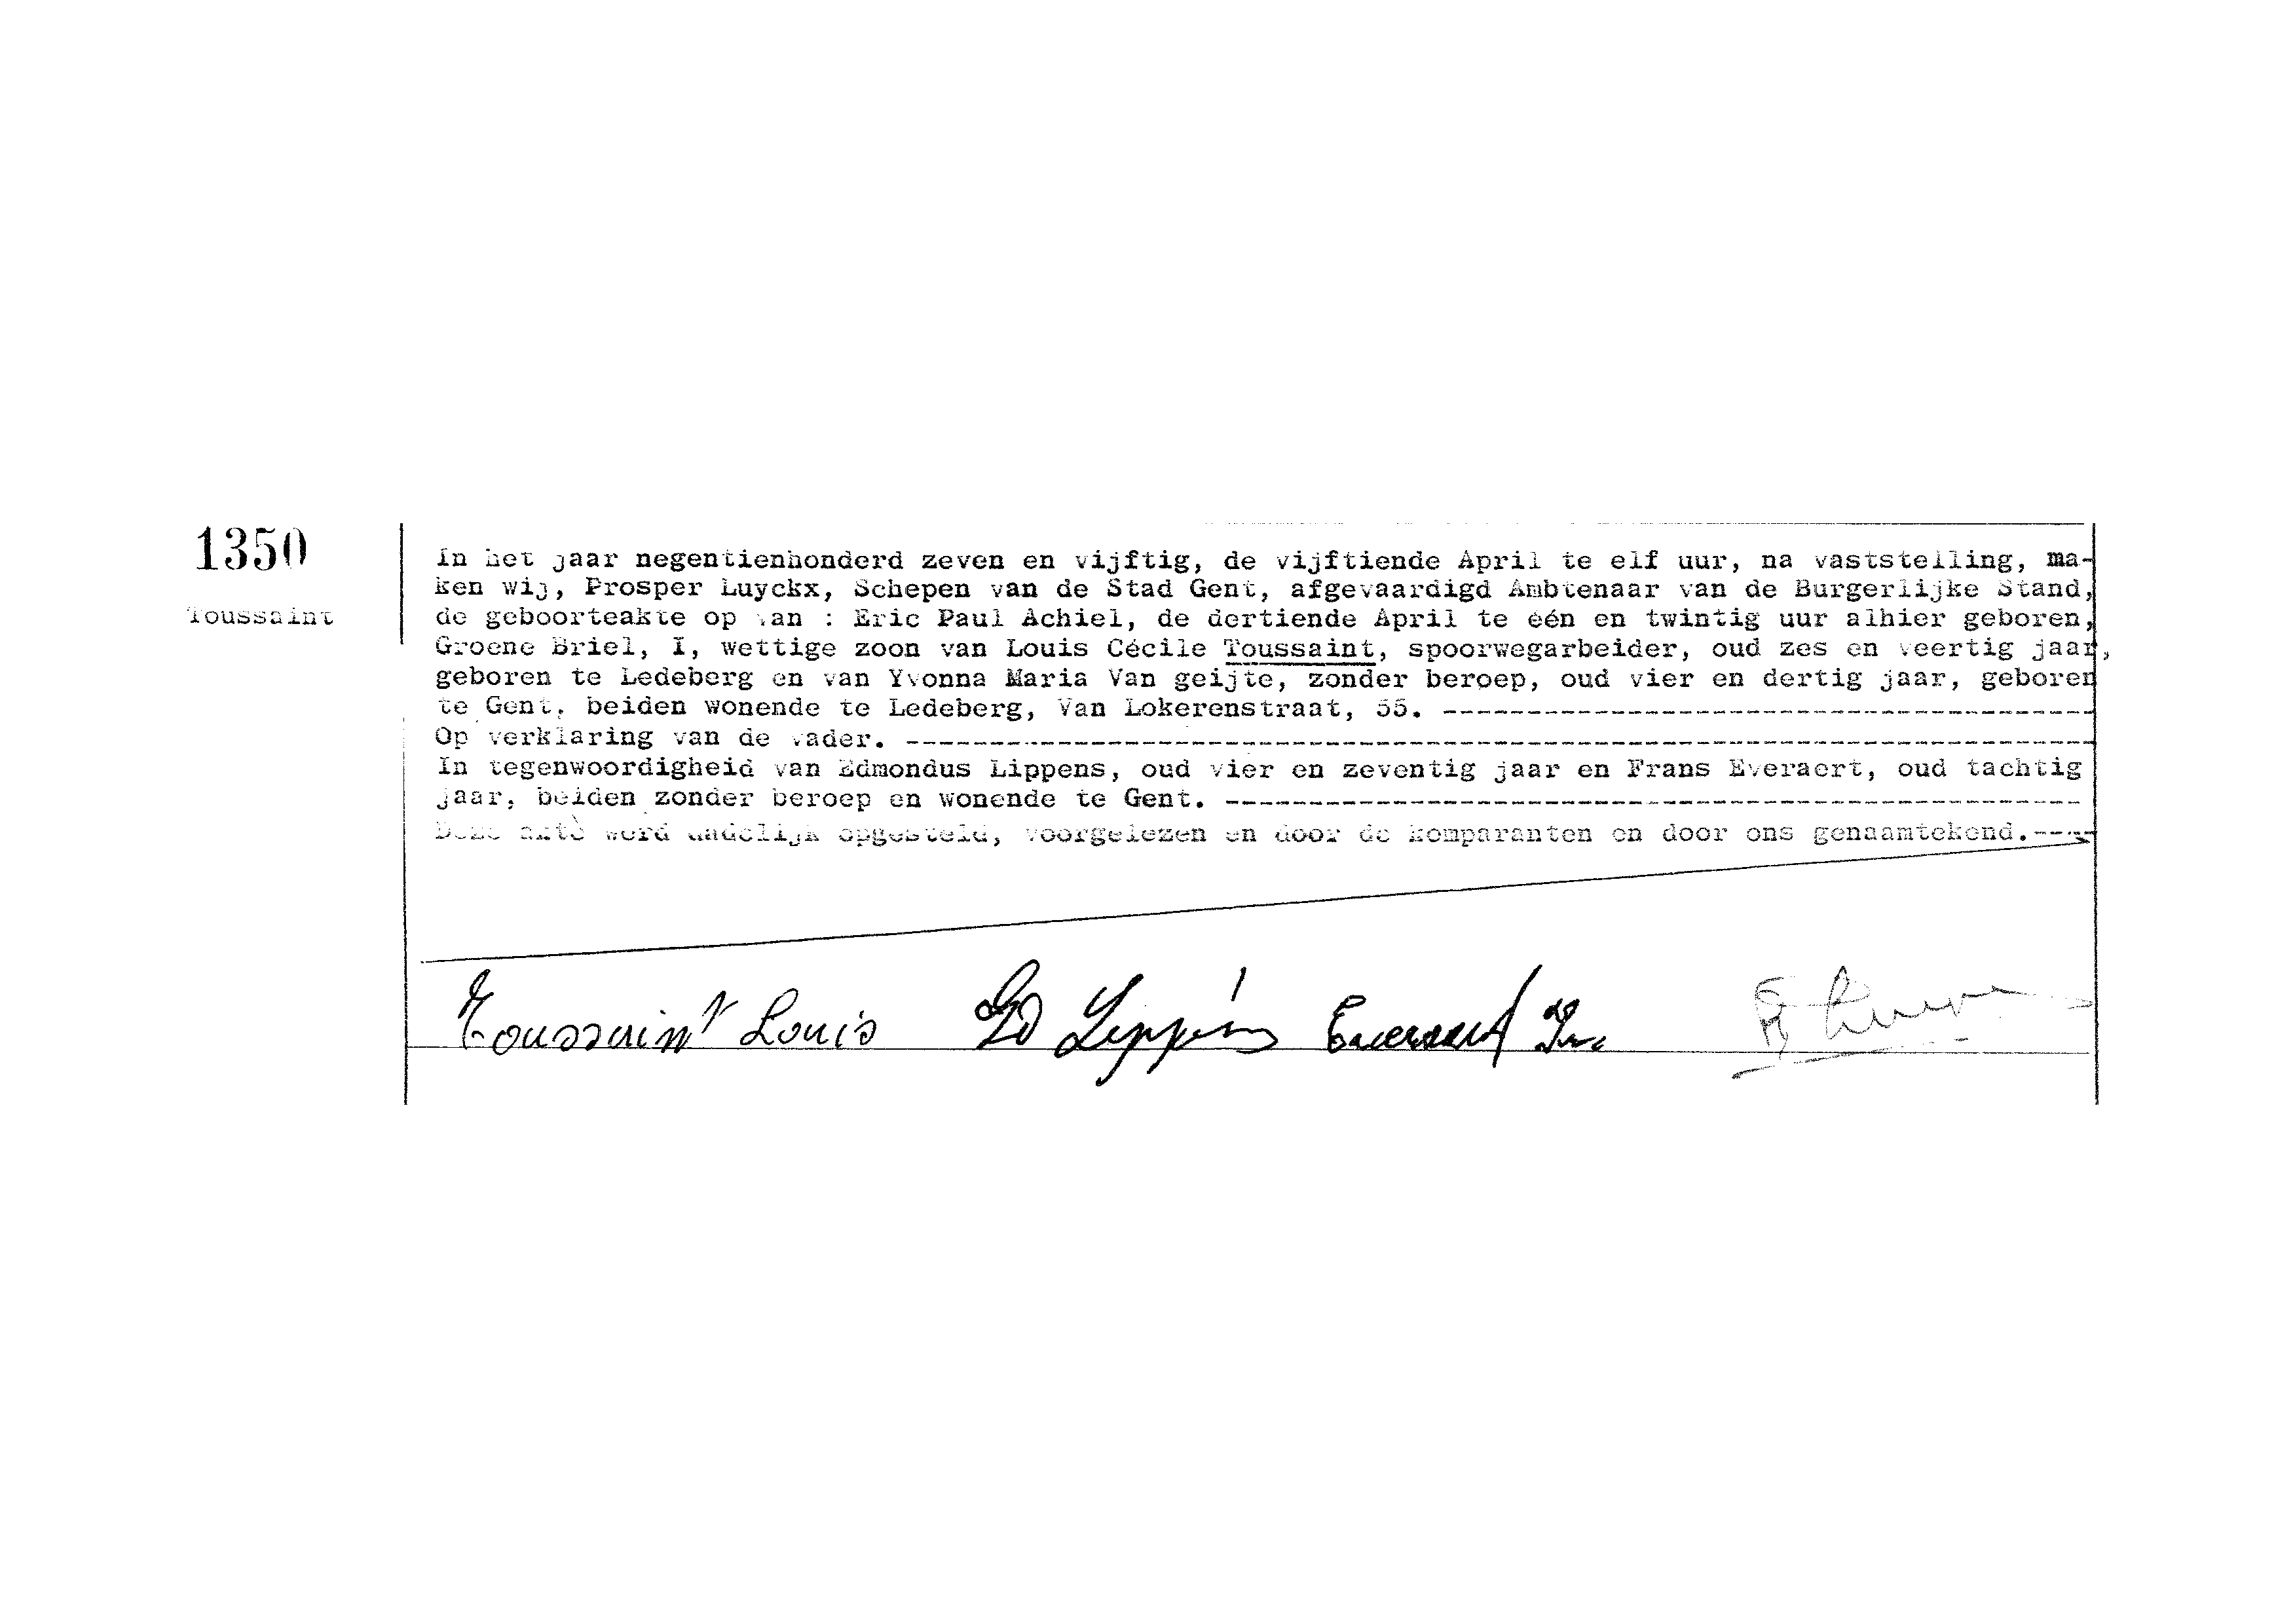 1350
Toussaint
In het jaar negentienhonderd zeven en vijftig, de vijftiende April te elf uur, na vaststelling, ma-
ken wij, Prosper Luyckx, Schepen van de Stad Gent, afgevaardigd Ambtenaar van de Burgerlijke Stand,
de geboorteakte op van : Eric Paul Achiel, de dertiende April te één en twintig uur alhier geboren,
Groene Briel, I, wettige zoon van Louis Cécile Toussaint, spoorwegarbeider, oud zes en veertig jaar,
geboren te Ledeberg en van Yvonna Maria Van geijte, zonder beroep, oud vier en dertig jaar, geboren
te Gent, beiden wonende te Ledeberg, Van Lokerenstraat, 55. ---------------------------------------
Op verklaring van de vader. -----------------------------------------------------------------------
In tegenwoordigheid van Edmondus Lippens, oud vier en zeventig jaar en Frans Everaert, oud tachtig
jaar, beiden zonder beroep en wonende te Gent. ---------------------------------------------------
Deze akte werd dadelijk opgesteld, voorgelezen en door de komparanten en door ons genaamtekend.----
Toussaint Louis Ed Lippens Everaert